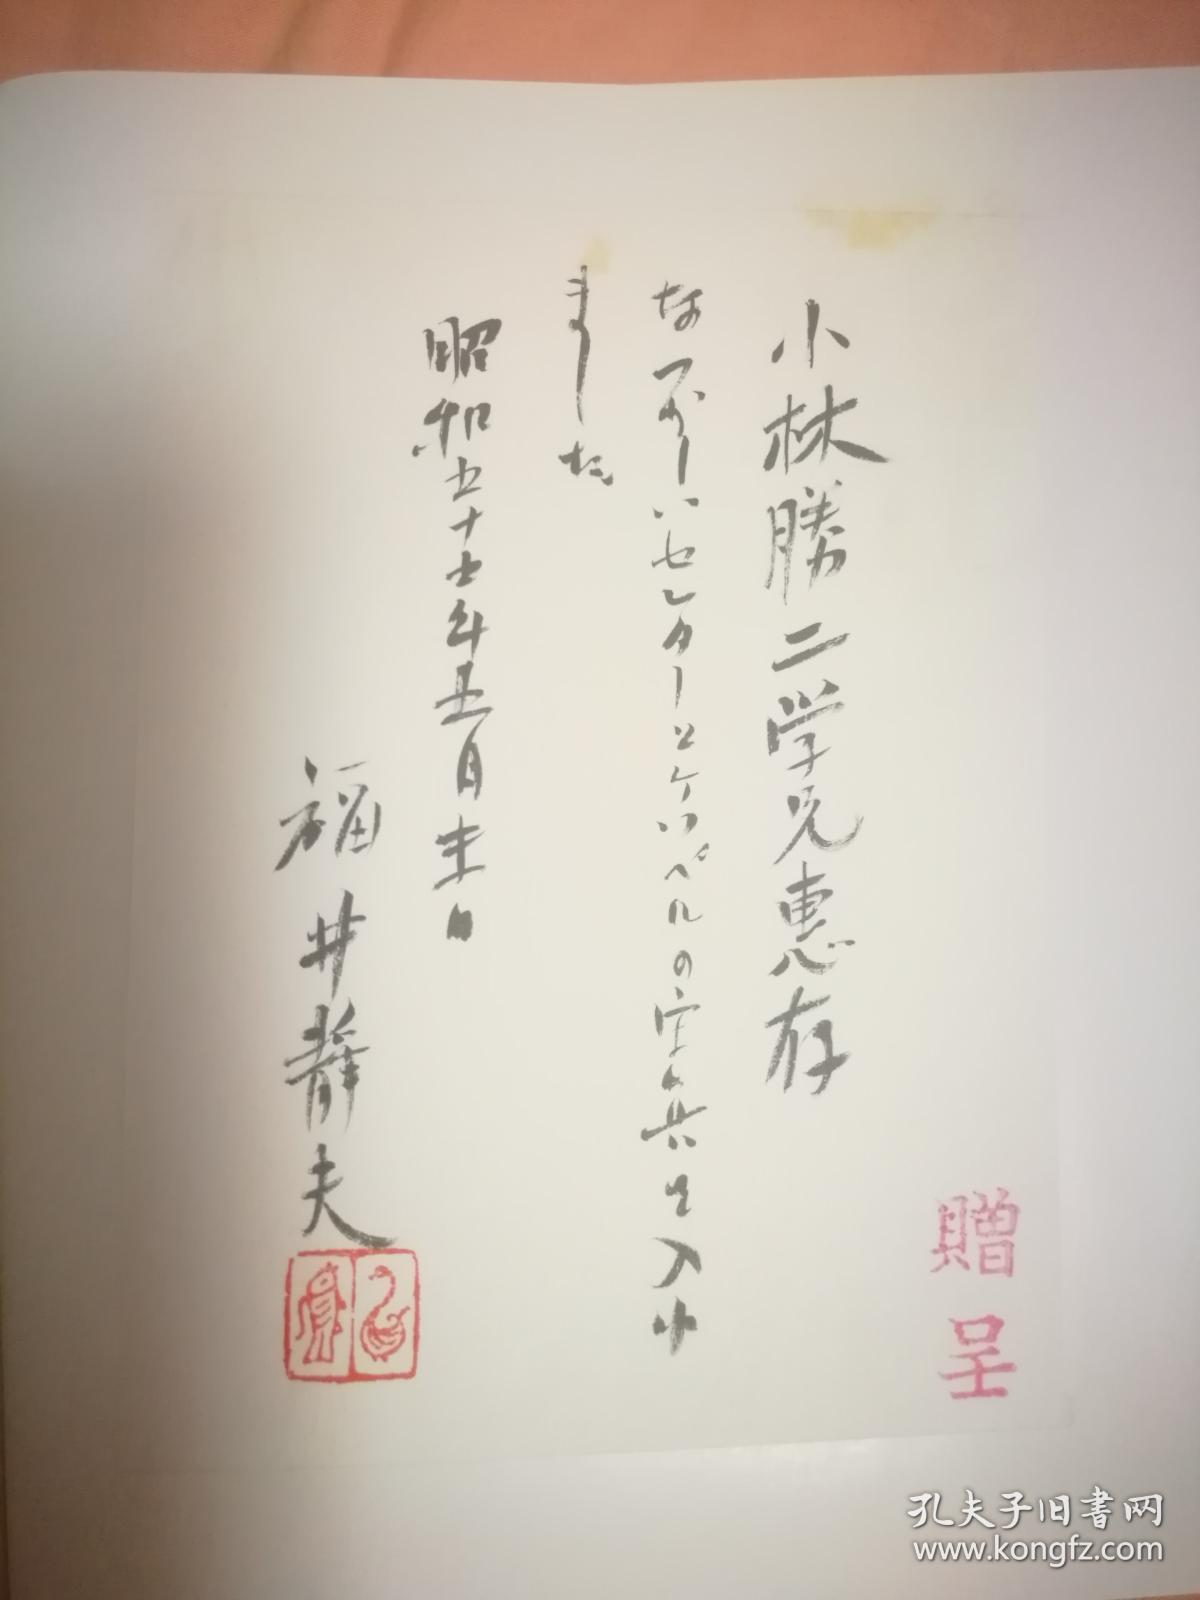 贈呈
小林勝二学兄惠存
なつかしいセレターとケッペルの写真も入れ
ました
昭和五十七年五月末日
福井静夫
孔夫子旧书网
www.kongfz.com